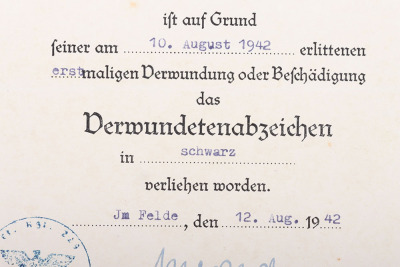 ist auf Grund
seiner am 10. August 1942 erlittenen
erstmaligen Verwundung oder Beschädigung
das
Verwundetenabzeichen
in schwarz
verliehen worden.
Jm Felde, den 12. Aug. 1942